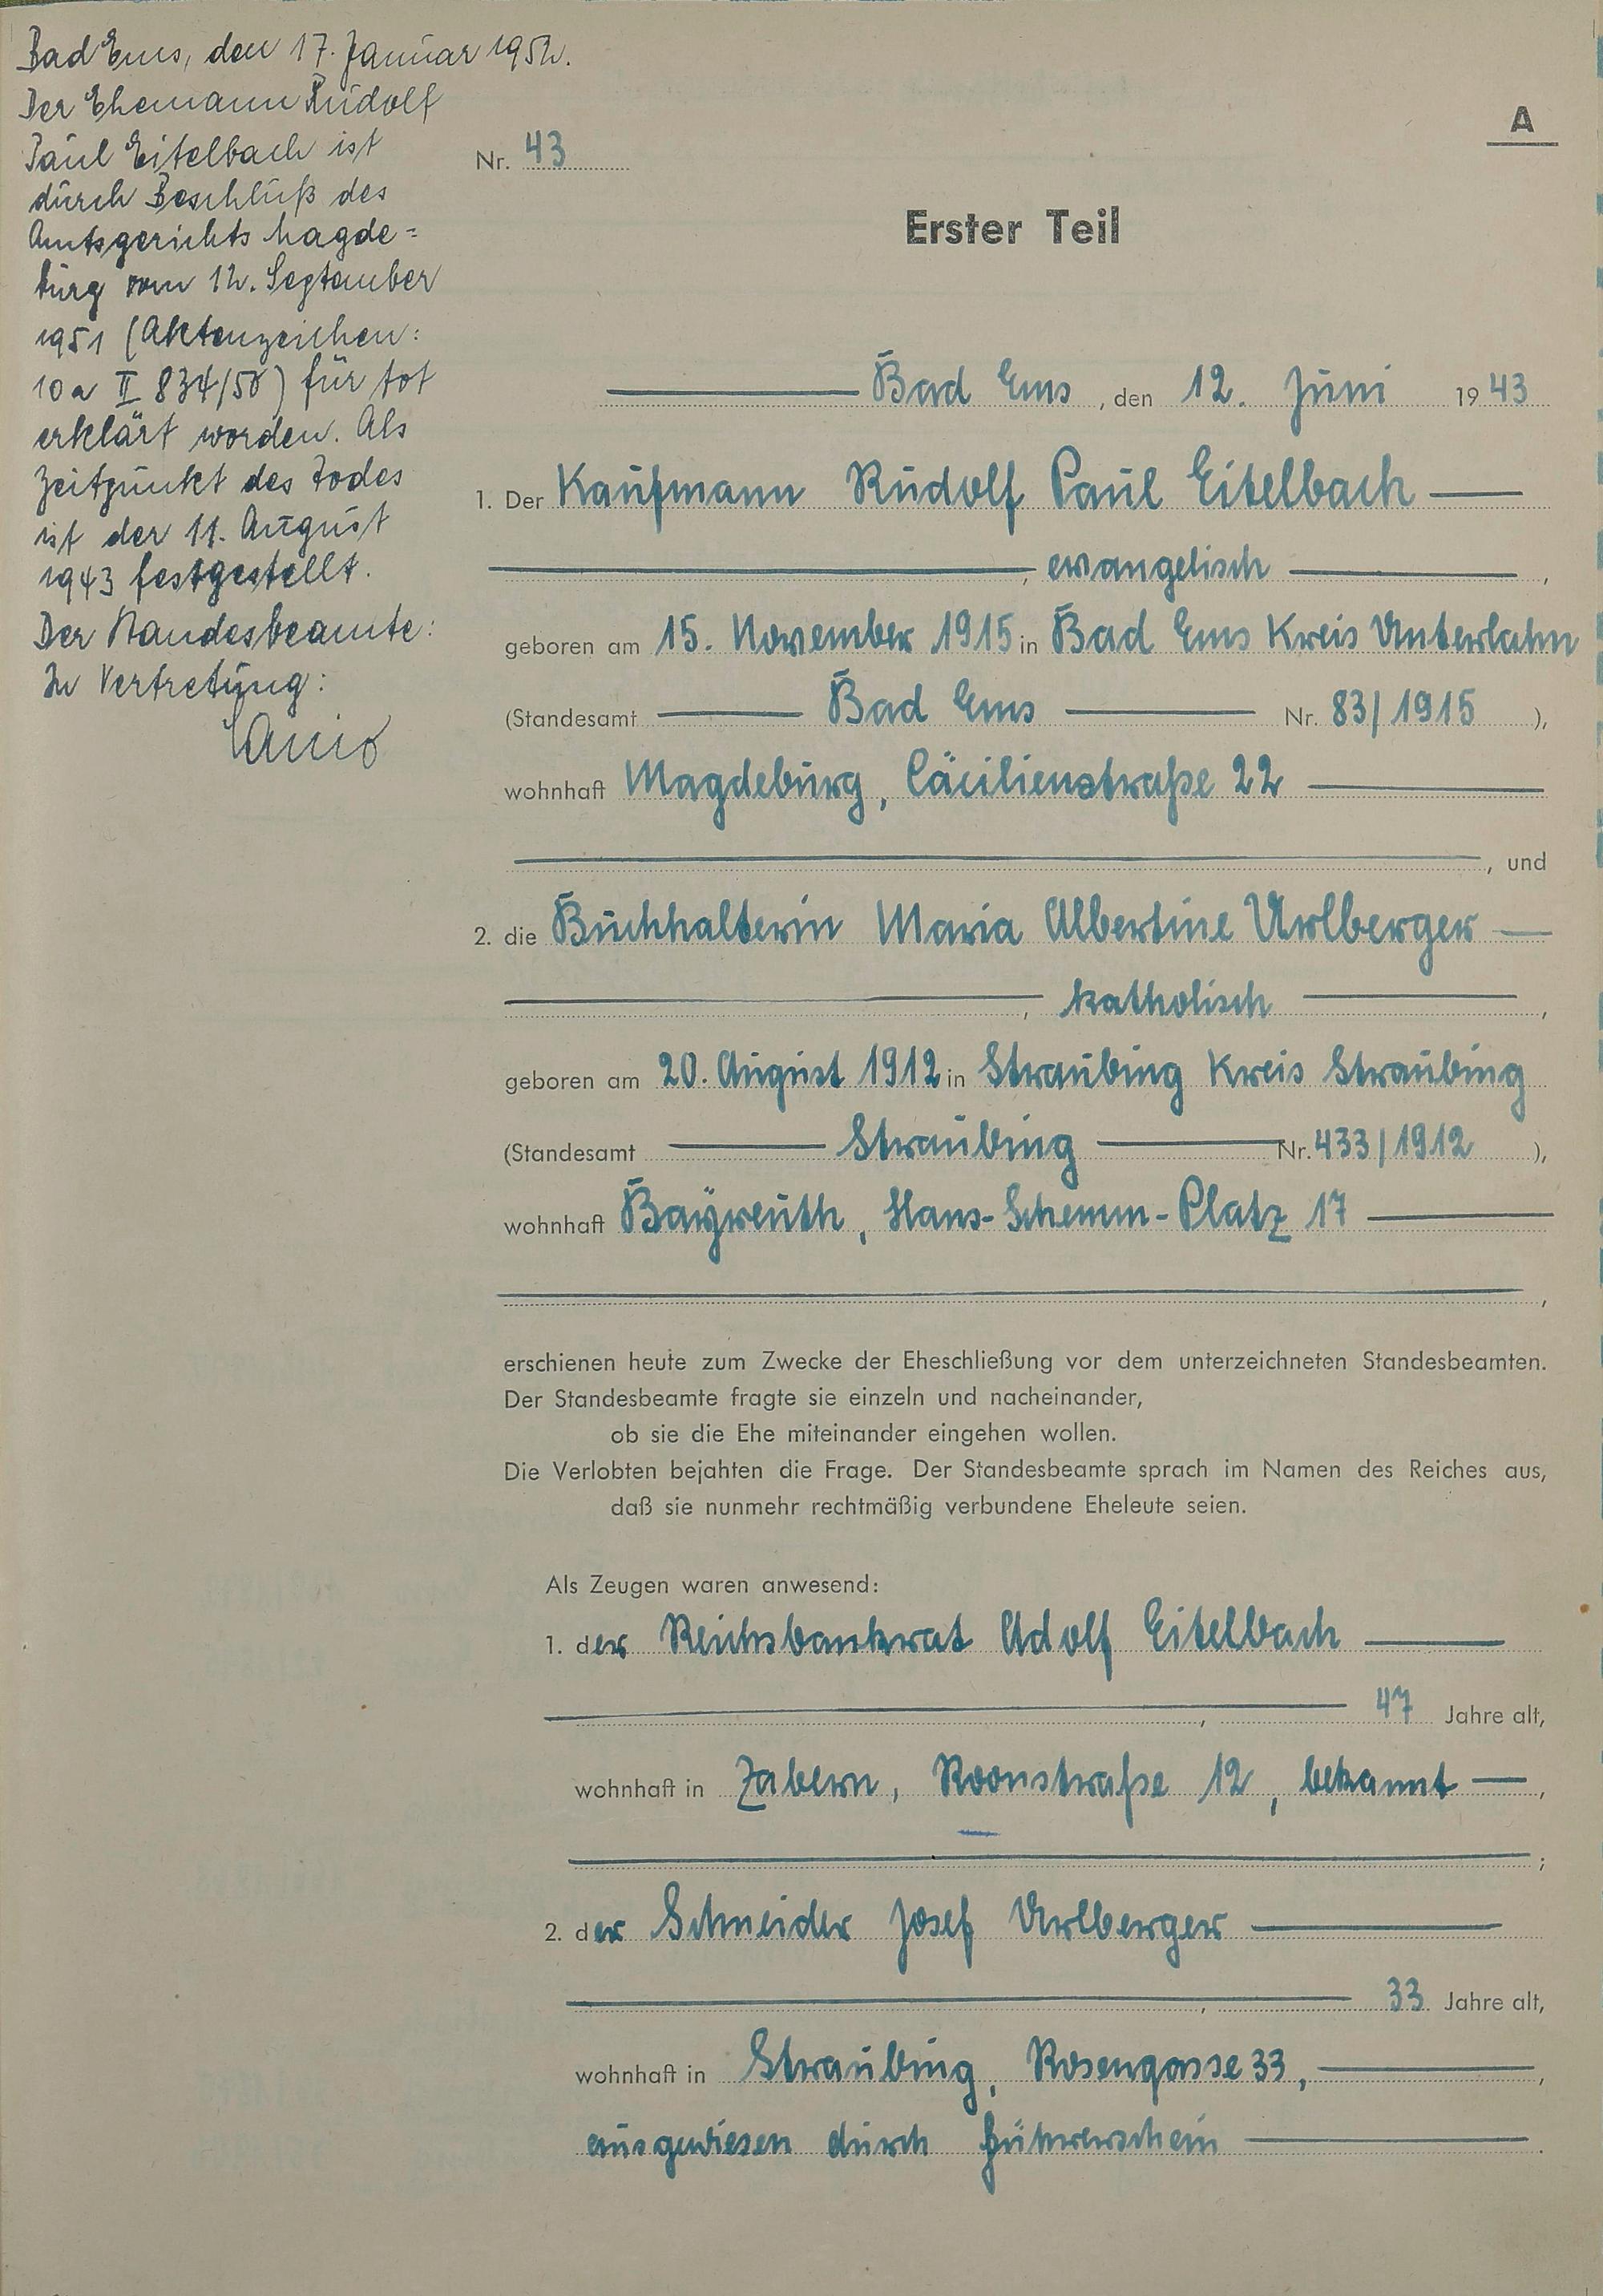 Bad Ems, den 17. Januar 1952.
Der Ehemann Rudolf
Paul Eitelbach ist
durch Beschluß des
Amtsgerichts Magde=
burg vom 12. September
1951 (Aktenzeichen:
10a II 834/50) für tot
erklärt worden. Als
Zeitpunkt des Todes
ist der 11. August
1943 festgestellt.
Der Standesbeamte:
In Vertretung:
A
Nr. 43
Erster Teil
Bad Ems, den 12. Juni 1943
1. Der Kaufmann Rudolf Paul Eitelbach
, evangelisch,
geboren am 15. November 1915 in Bad Ems Kreis Unterlahn
(Standesamt Bad Ems Nr. 83/1915),
wohnhaft Magdeburg, Cäcilienstraße 22
, und
2. die Buchhalterin Maria Albertine Urlberger
, katholisch,
geboren am 20. August 1912 in Straubing Kreis Straubing
(Standesamt Straubing Nr. 433/1912),
wohnhaft Bayreuth, Hans-Schemm-Platz 17
,
erschienen heute zum Zwecke der Eheschließung vor dem unterzeichneten Standesbeamten.
Der Standesbeamte fragte sie einzeln und nacheinander,
ob sie die Ehe miteinander eingehen wollen.
Die Verlobten bejahten die Frage. Der Standesbeamte sprach im Namen des Reiches aus,
daß sie nunmehr rechtmäßig verbundene Eheleute seien.
Als Zeugen waren anwesend:
1. der Reichsbankrat Adolf Eitelbach
, 47 Jahre alt,
wohnhaft in Zabern, Roonstraße 12, bekannt,
;
2. der Schneider Josef Urlberger
, 33 Jahre alt,
wohnhaft in Straubing, Rosengasse 33,,
ausgewiesen durch Führerschein.